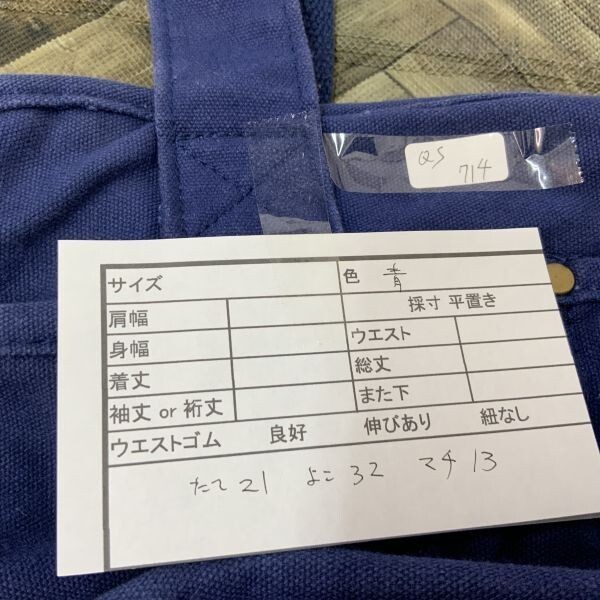 QS
714
サイズ 色 青
肩幅 採寸 平置き
身幅 ウエスト
着丈 総丈
袖丈 or 裄丈 また下
ウエストゴム 良好 伸びあり 紐なし
たて 21 よこ 32 マチ 13